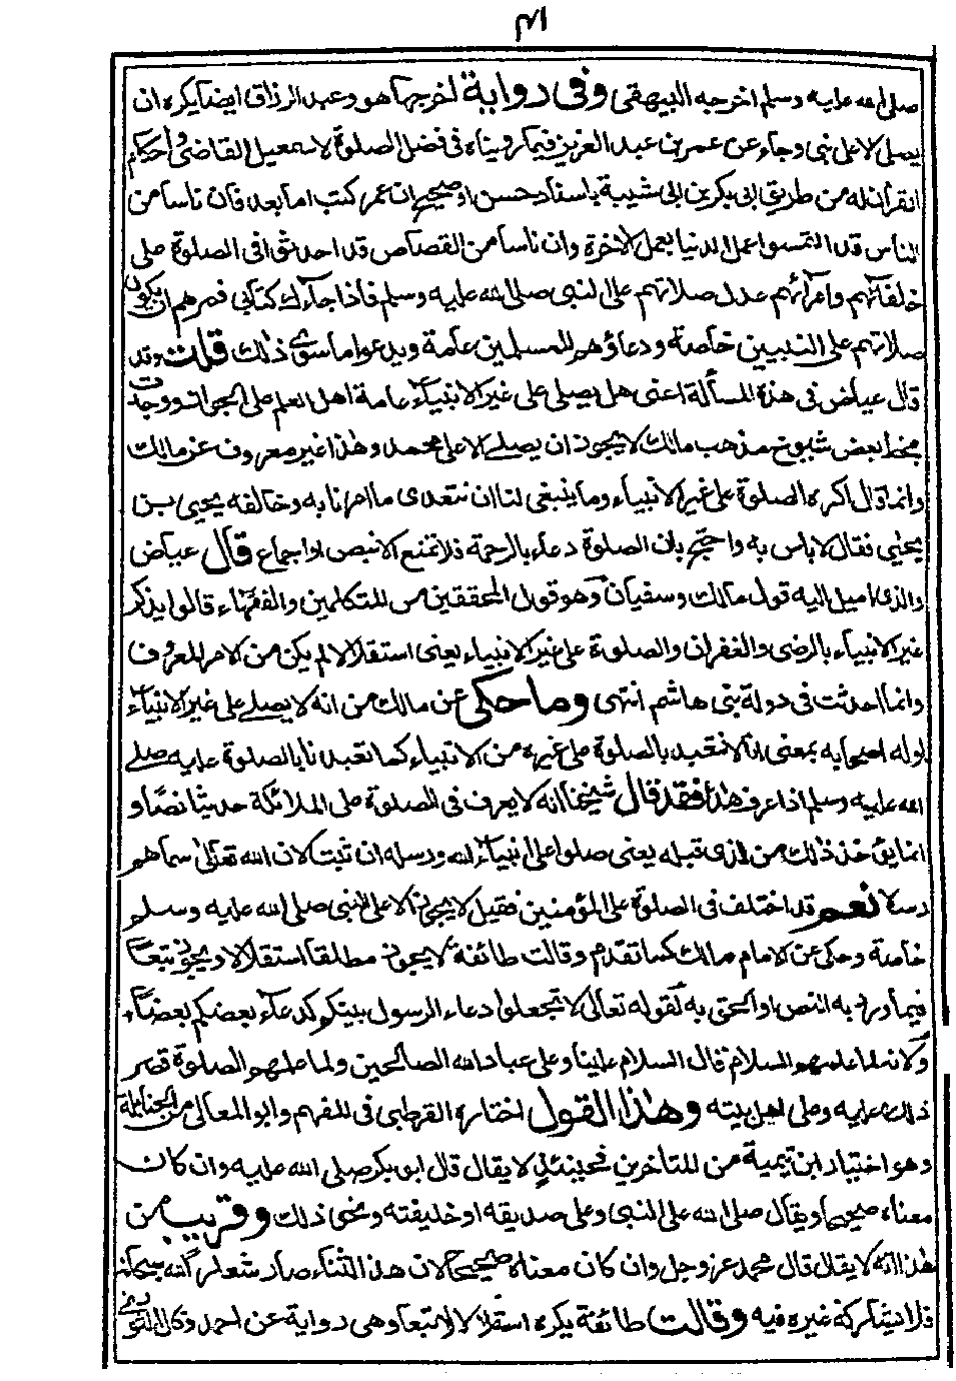 ٤١
صلى الله عليه وسلم اخرجه البيهقى وفى رواية اخرجها هو وعبد الرزاق ايضا يكره ان
يصلى الا على نبى وجاء عن عمر بن عبد العزيز فيما رويناه فى فضل الصلوة لاسمعيل القاضى واحكام
القران له من طريق ابى بكر بن ابى شيبة باسناد حسن او صحيح ان عمر كتب اما بعد فان ناسا من
الناس قد التمسوا عمل الدنيا بعمل الاخرة وان ناسا من القصاص قد احدثوا فى الصلوة على
خلفائهم وامرائهم عدل صلاتهم على النبى صلى الله عليه وسلم فاذا جاءك كتابى فمرهم ان يكون
صلاتهم على النبيين خاصة ودعاؤهم للمسلمين عامة ويدعوا ما سوى ذلك قلت وقد
قال عياض فى هذه المسألة اعنى هل يصلى على غير الانبياء عامة اهل العلم على الجواز ووجدت
بخط بعض شيوخ مذهب مالك لا يجوز ان يصلى الا على محمد وهذا غير معروف عن مالك
وانما قال اكره الصلوة على غير الانبياء وما ينبغى لنا ان نتعدى ما امرنا به وخالفه يحيى بن
يحيى فقال لا باس به واحتج بان الصلوة دعاء بالرحمة فلا تمنع الا بنص او اجماع قال عياض
والذى اميل اليه قول مالك وسفيان وهو قول المحققين من المتكلمين والفقهاء قالوا يذكر
غير الانبياء بالرضى والغفران والصلوة على غير الانبياء يعنى استقلالا لم يكن من الامر المعروف
وانما احدثت فى دولة بنى هاشم انتهى وما حكى عن مالك من انه لا يصلى على غير الانبياء
اوله اصحابه بمعنى انا لا نتعبد بالصلوة على غيره من الانبياء كما تعبدنا بالصلوة عليه صلى
الله عليه وسلم اذا عرف هذا فقد قال شيخنا انه لا يعرف فى الصلوة على الملائكة حديثا نصا و
انما يؤخذ ذلك من الذى قبله يعنى صلوا على انبياء الله ورسله ان ثبت لان الله تعالى سماهم
رسلا نعم قد اختلف فى الصلوة على المؤمنين فقيل لا يجوز الا على النبى صلى الله عليه وسلم
خاصة وحكى عن الامام مالك كما تقدم وقالت طائفة لا يجوز مطلقا استقلالا ويجوز تبعا
فيما ورد به النص او الحق به لقوله تعالى لا تجعلوا دعاء الرسول بينكم كدعاء بعضكم بعضا
ولانه لما علمهم السلام قال السلام علينا وعلى عباد الله الصالحين ولما علمهم الصلوة قصر
ذلك عليه وعلى اهل بيته وهذا القول اختاره القرطبى فى المفهم وابو المعالى من الحنابلة
وهو اختيار ابن تيمية من المتاخرين فحينئذ لا يقال قال ابو بكر صلى الله عليه وان كان
معناه صحيحا ويقال صلى الله على النبى وعلى صديقه او خليفته ونحو ذلك وقريب من
هذا انه لا يقال قال محمد عز وجل وان كان معناه صحيحا لان هذا الثناء صار شعار الله سبحانه
فلا يشاركه غيره فيه وقالت طائفة يكره استقلالا لا تبعا وهى رواية عن احمد وقال النووى